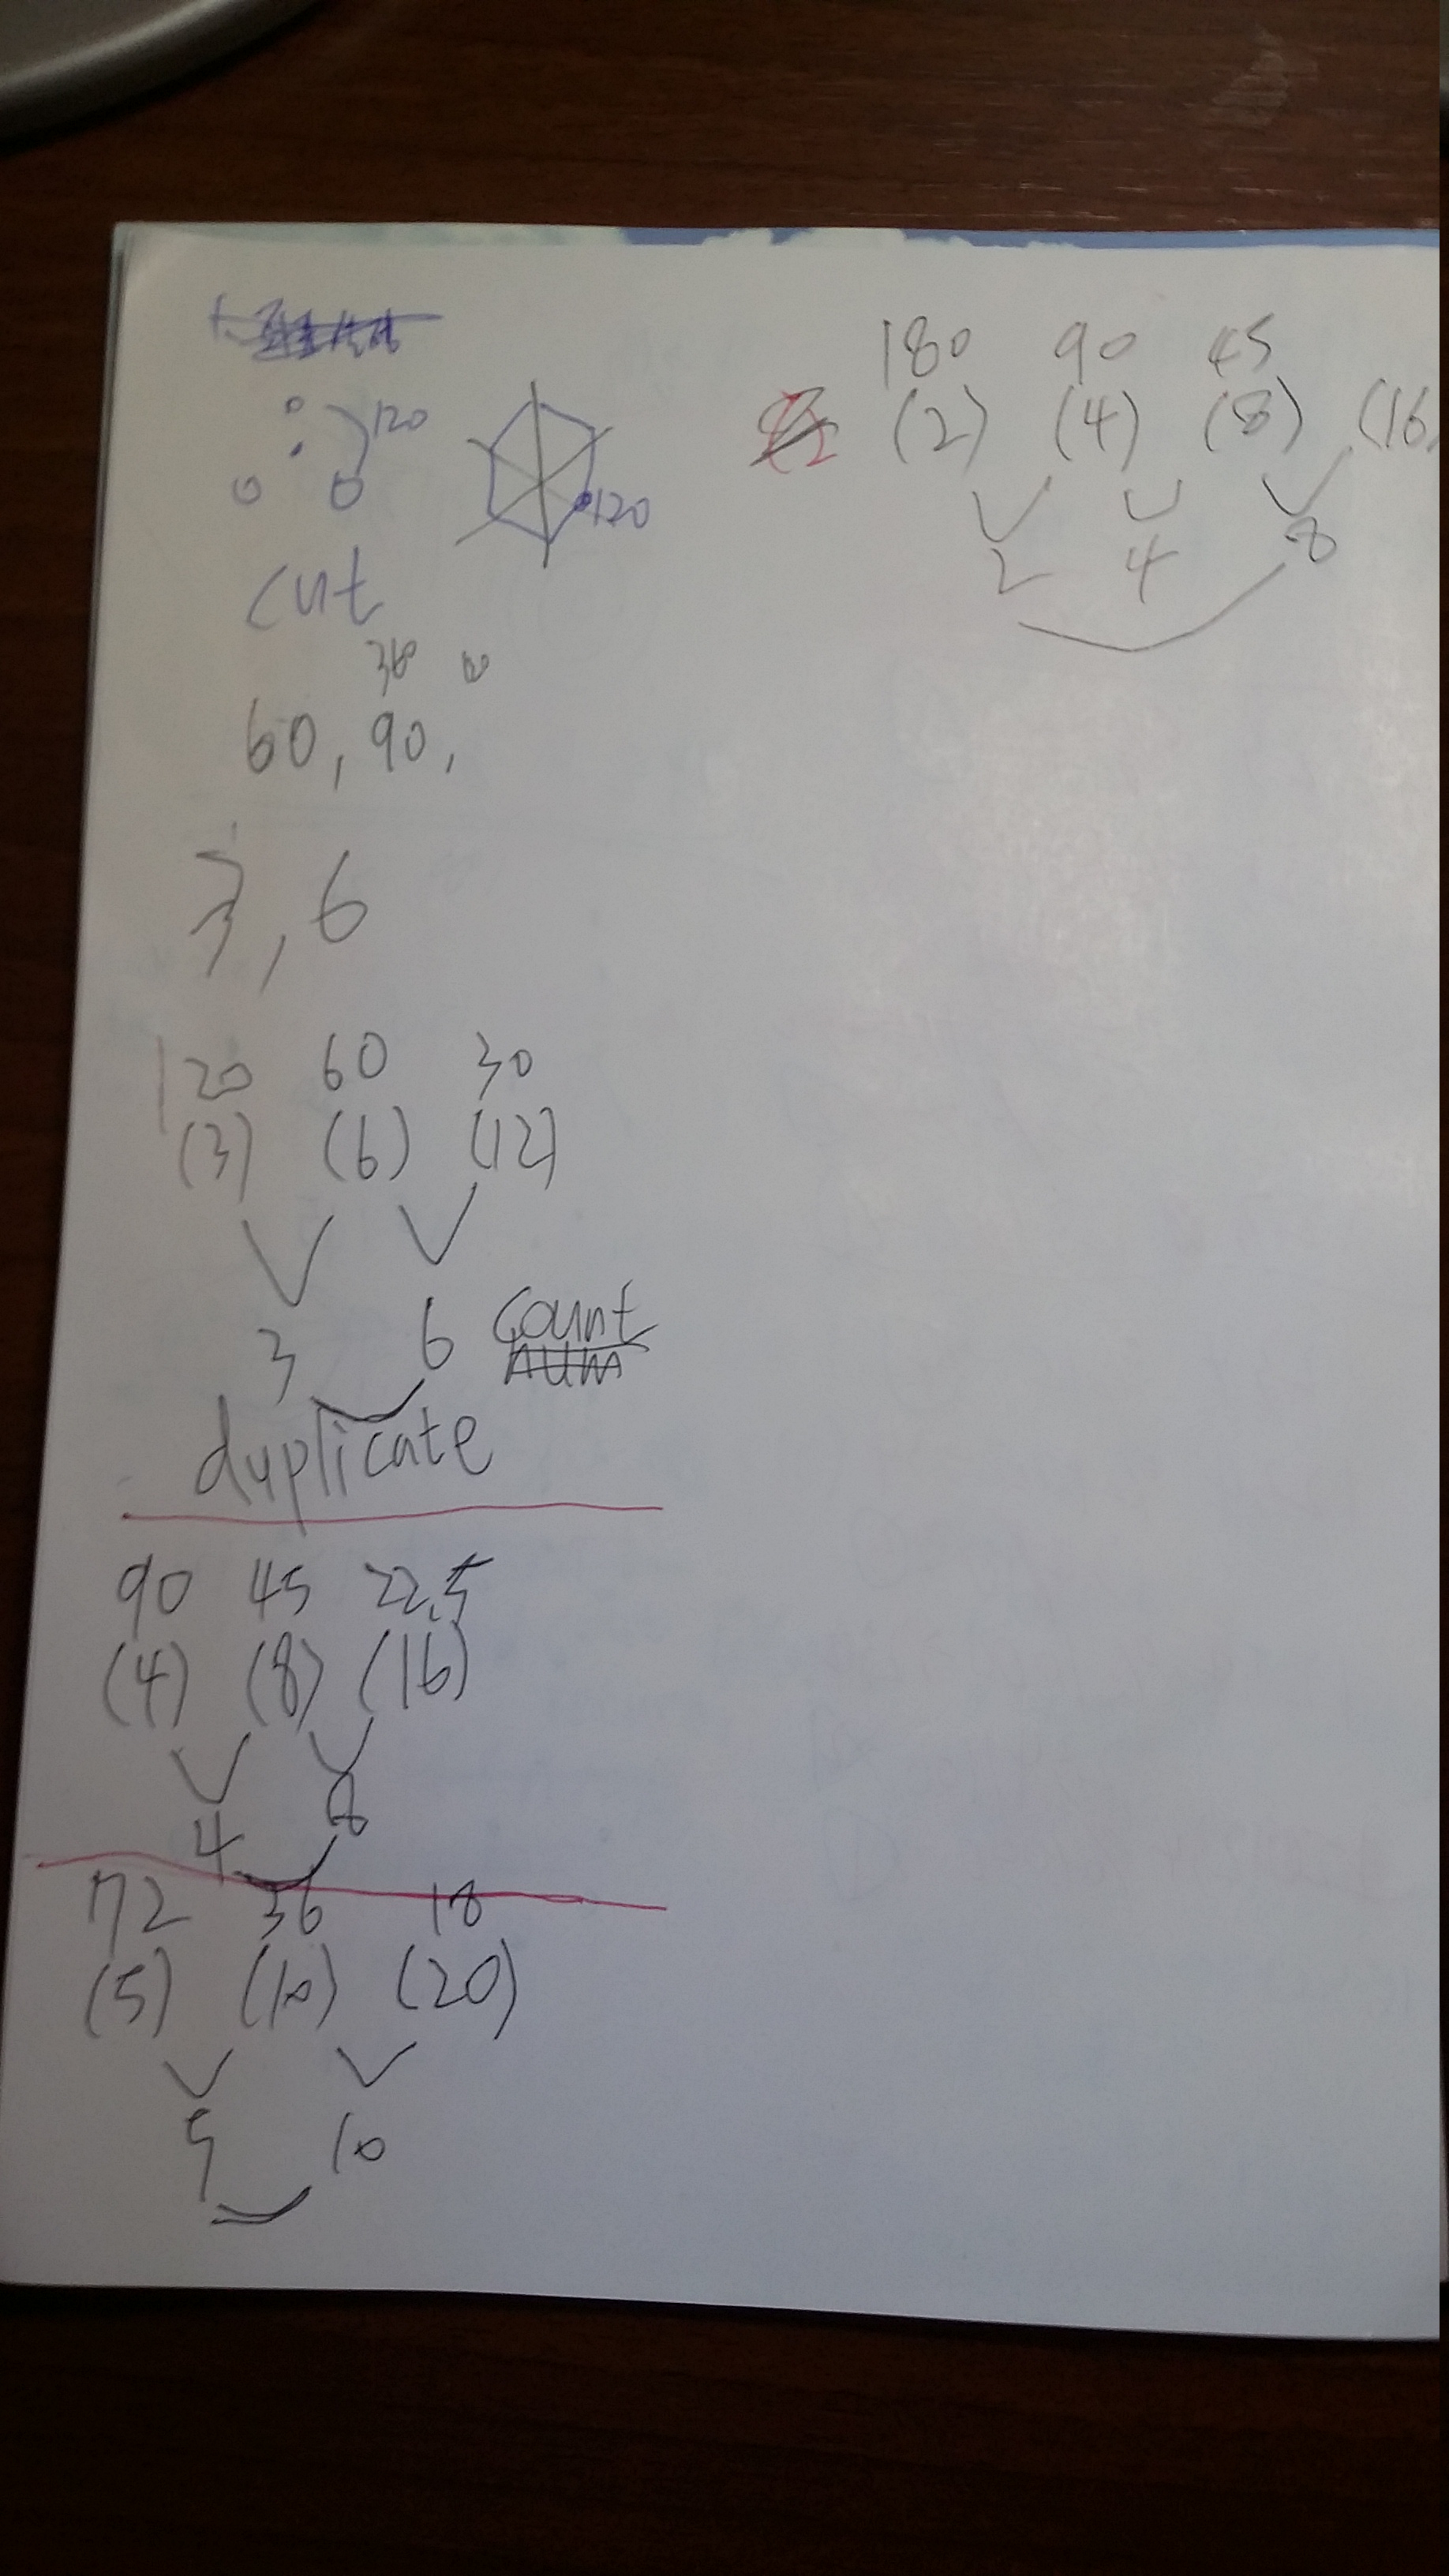 120
120
cut
36
60, 90,
3, 6
120 60 30
(3) (6) (12)
3 6 count
num
duplicate
90 45 22.5
(4) (8) (16)
4 8
72 36 18
(5) (10) (20)
5 10
180 90 45
(2) (4) (8) (16
2 4 8